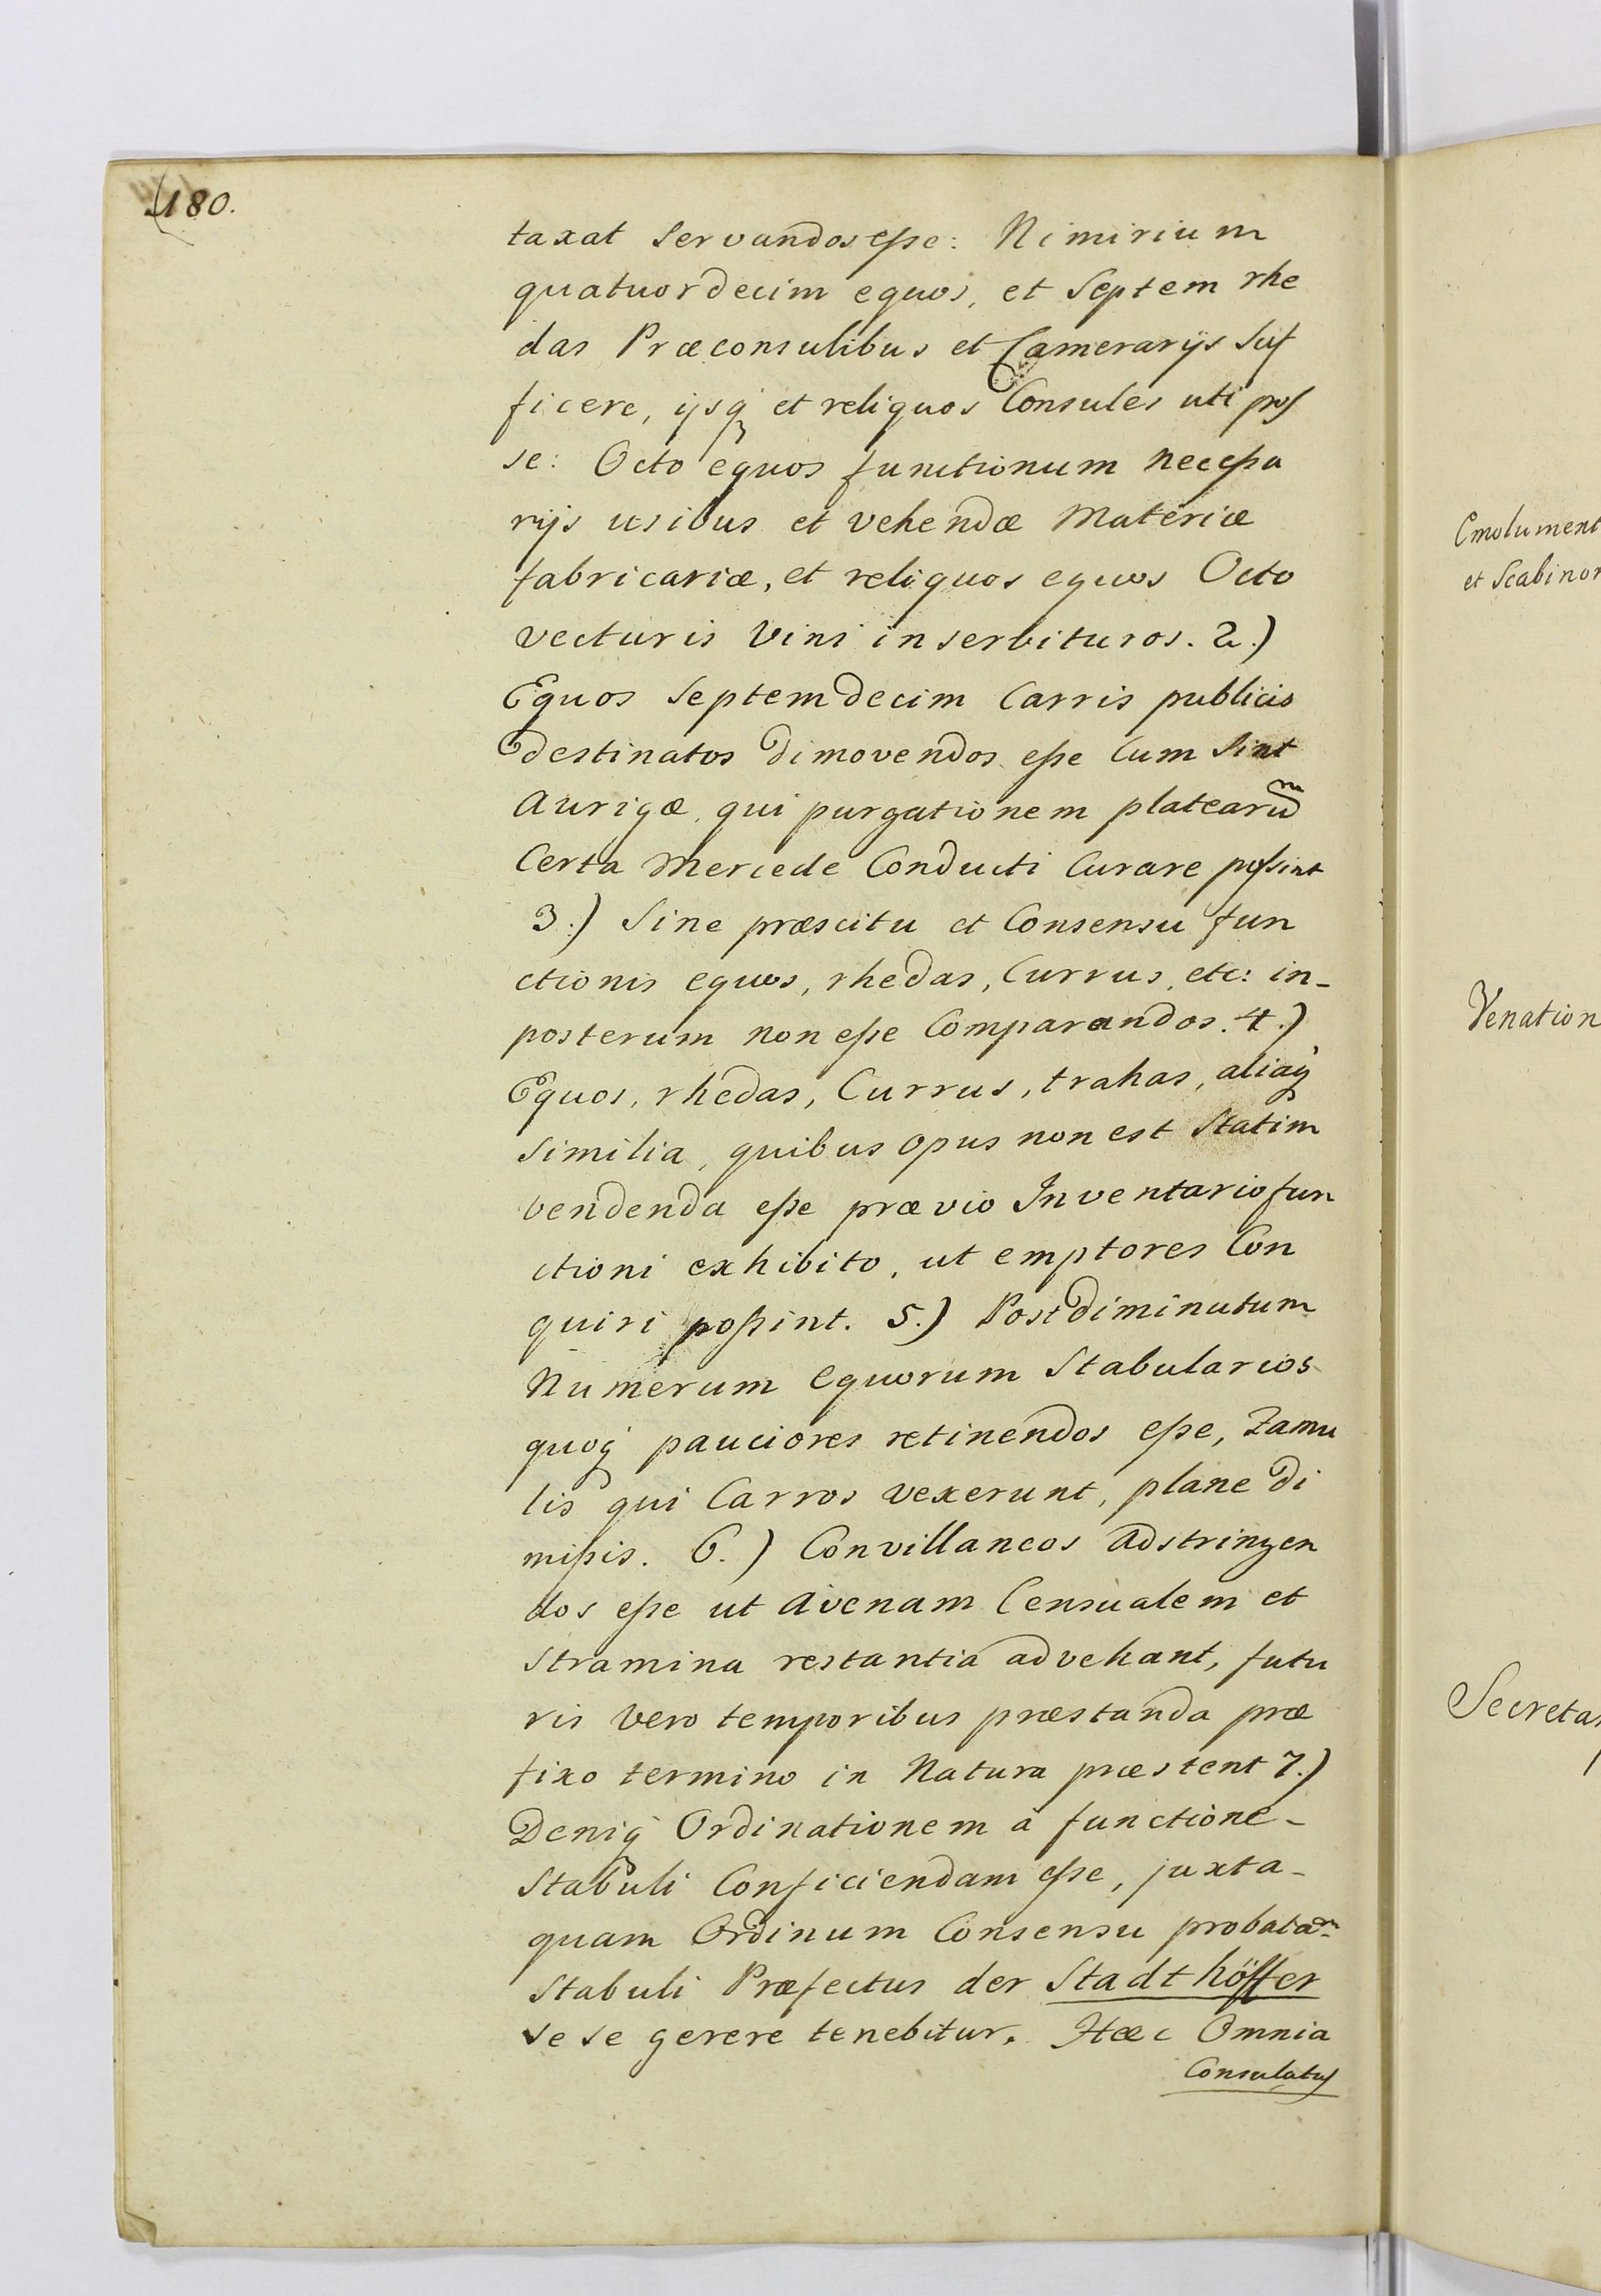 180.
taxat servandos esse: Nimirium
quatuordecim equos, et septem rhe
das Præconsulibus et Camerarijs suf
ficere, ijsq₃ et reliquos Consules uti pos
se: Octo equos functionum necessa
rijs usibus et vehendæ Materiæ
fabricariæ, et reliquos equos Octo
vecturis Vini inservituros. 2.)
Equos Septemdecim Carris publicis
destinatos dimovendos esse Cum sint
Aurigæ, qui purgationem platearum
Certa Mercede Conducti Curare possint
3.) Sine præscitu et Consensu fun
ctionis equos, rhedas, Currus, etc: in-
posterum non esse Comparandos. 4.)
Equos, rhedas, Currus, trahas, aliaq₃
similia, quibus opus non est statim
vendenda esse prævio Inventario fun
ctioni exhibito, ut emptores Con
quiri possint. 5.) Post diminutum
Numerum equorum Stabularios
quoq₃ pauciores retinendos esse, Famu
lis qui Carros vexerunt, plane di
missis. 6.) Convillaneos adstringen
dos esse ut avenam Censualem et
stramina restantia advehant, futu
ris Vero temporibus præstanda præ
fixo termino in Natura præstent 7.)
Deniq₃ Ordinationem à functione-
Stabuli Conficiendam esse, juxta-
quam Ordinum Consensu probatam-
Stabuli Præfectus der Stadthöffer
sese gerere tenebitur. Hæc Omnia
Consulatus
Emolument
et Scabinor
Venation
Secretar